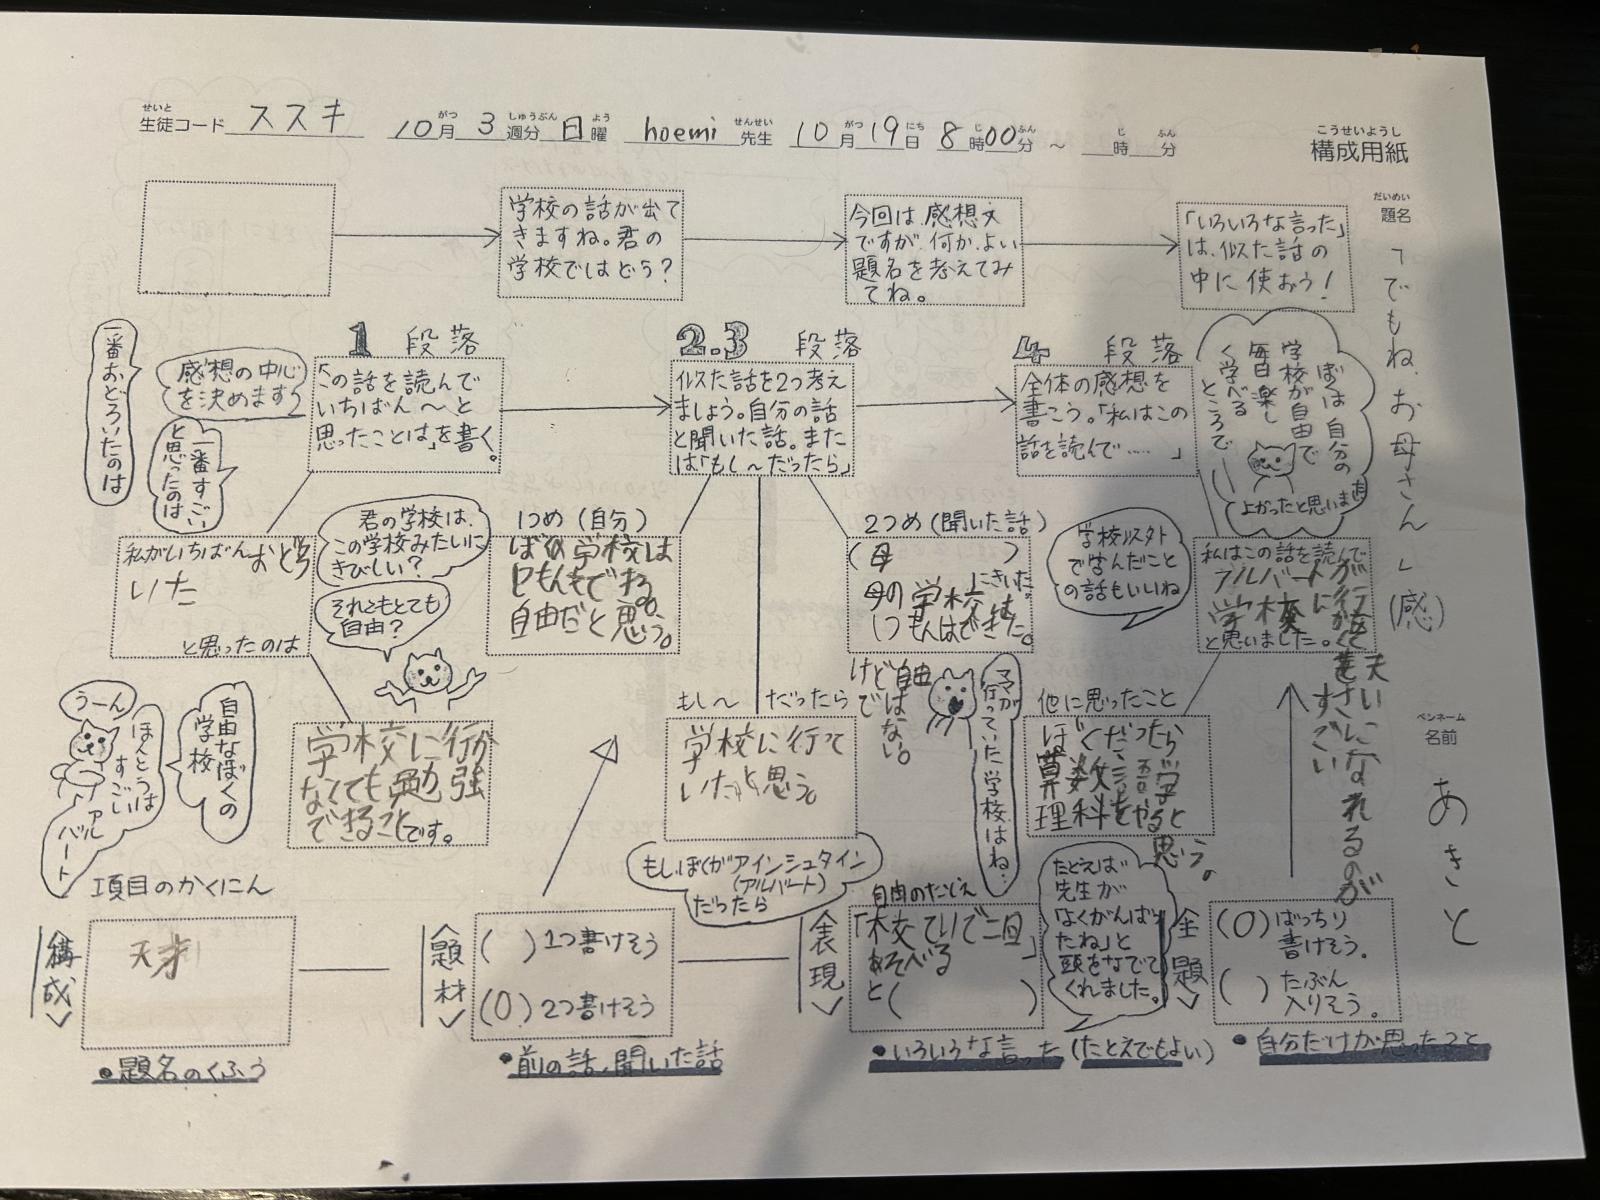 せいと
生徒コード ススキ 10月 3週分 日曜 hoemi 先生 10月19日 8時00分 ～ 時 分
がつ しゅうぶん よう せんせい がつ にち じ ふん じ ふん
こうせいようし
構成用紙
だいめい
題名
「でもね、お母さん」(感)
ペンネーム
名前
あきと
学校の話が出て
きますね。君の
学校ではどう？
今回は、感想文
ですが、何か、よい
題名を考えてみ
てね。
「いろいろな言った」
は、似た話の
中に使おう！
1 段落
一番おどろいたのは
感想の中心
を決めます
一番すごい
と思ったのは
「この話を読んで
いちばん～と
思ったことは」を書く。
2.3 段落
似た話を2つ考え
ましょう。自分の話
と聞いた話。また
は「もし～だったら」
4 段落
全体の感想を
書こう。「私はこの
話を読んで……」
ぼくは自分の
学校が自由で
毎日楽し
く学べる
ところで
よかったと思います
私がいちばんおどろ
いた
と思ったのは
君の学校は、
この学校みたいに
きびしい？
それともとても
自由？
1つめ（自分）
ぼくの学校は
自由だと思う。
2つめ（聞いた話）
(母 )
にきいた。
母の学校
けど自由
ではない。
学校以外
で学んだこと
の話もいいね
私はこの話を読んで
アルバートが
学校に
と思いました。
天さいになれるのが
すごい
うーん
ほんとうは
すごい
アル
バート
自由なぼくの
学校
学校に行か
なくても勉強
できることです。
もし～ だったら
学校に行って
いたと思う。
もしぼくがアインシュタイン
(アルバート)
だったら
ママが
行っていた学校はね…
他に思ったこと
ぼくだったら
算数、国語
理科をやると
思う。
項目のかくにん
＜構成＞
天才
●題名のくふう
＜題材＞
( )1つ書けそう
(O)2つ書けそう
●前の話、聞いた話
＜表現＞
自由のたとえ
あそべる
と( )
●いろいろな言った(たとえでもよい)
たとえば
先生が
「よくがんば
たね」と
頭をなでて
くれました。
＜主題＞
(O)ばっちり
書けそう。
( )たぶん
入りそう。
●自分だけが思ったこと